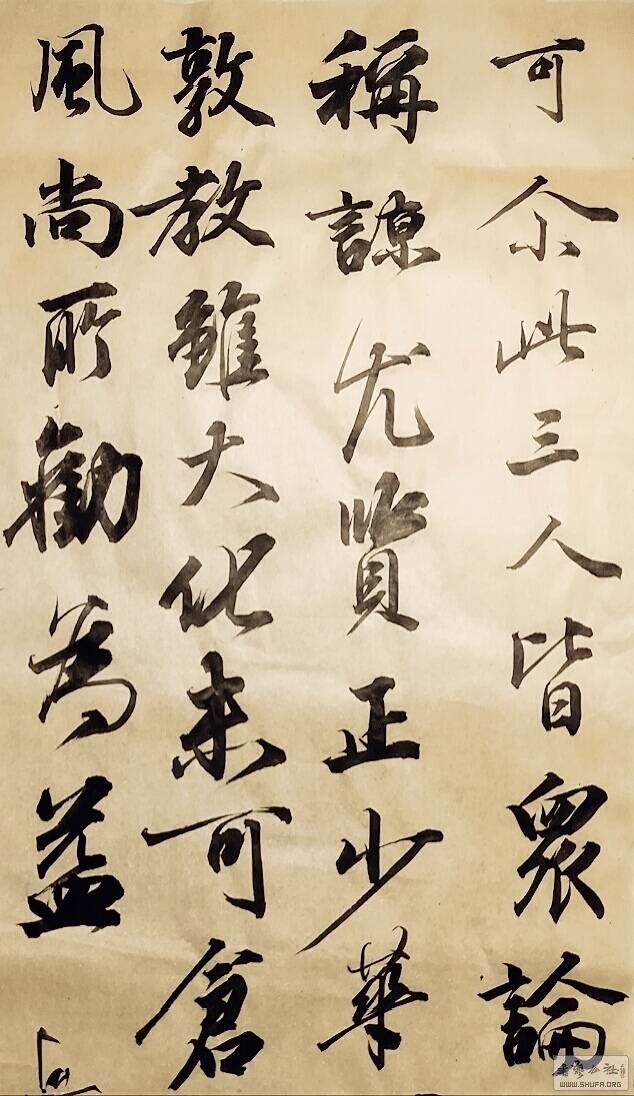 可尒此三人皆眾論
稱諒尤賢正少華
敦教雖大化未可倉
風尚所勸為益
书法公社
WWW.SHUFA.ORG